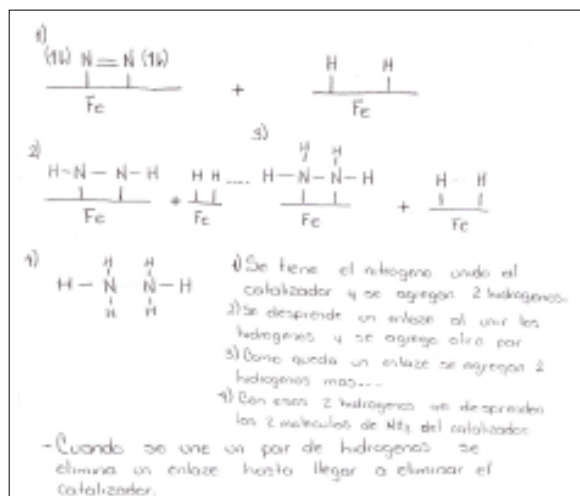 1)
(1h) N=N (1h)
H H
Fe
+
Fe
2)
H-N-N-H
+
H H
....
Fe
Fe
3)
H H
H-N-N-H
+
H H
Fe
Fe
4)
H H
H-N N-H
H H
1) Se tiene el nitrogeno unido al
catalizador y se agregan 2 hidrogenos.
2) Se desprende un enlace al unir los
hidrogenos y se agrega otro par
3) Como queda un enlace se agregan 2
hidrogenos mas....
4) Con esos 2 hidrogenos se desprenden
las 2 moleculas de NH3 del catalizador.
- Cuando se une un par de hidrogenos se
elimina un enlace hasta llegar a eliminar el
catalizador.